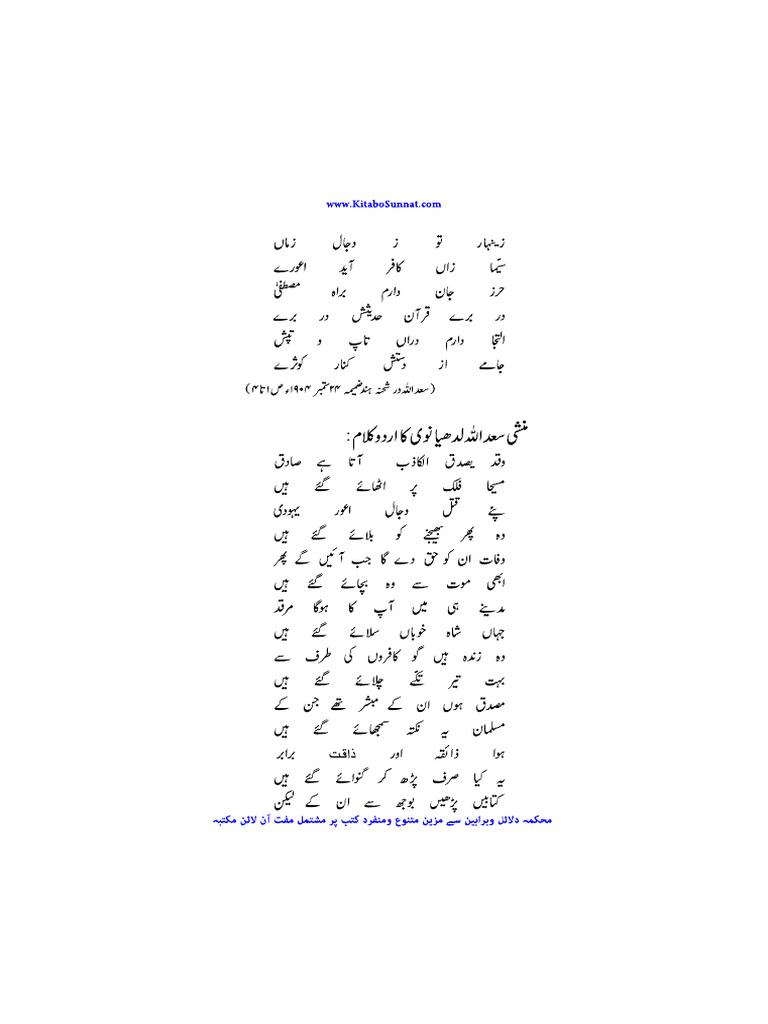 www.KitaboSunnat.com
زینہار تو ز دجال زماں
سیّما زاں کافر آید اعورے
حرز جان دارم براہ مصطفیٰ
در برے قرآن حدیثش در برے
التجا دارم دراں تاپ و تپش
جامے از دستش کنار کوثرے
(سعداللہ در شحنہ ہند ضمیمہ ۲۴ ستمبر ۱۹۰۴ء ص ۱ تا ۴)
منشی سعد اللہ لدھیانوی کا اردو کلام:
وقد یصدق الکاذب آتا ہے صادق
مسیحا فلک پر اٹھائے گئے ہیں
پئے قتل دجال اعور یہودی
وہ پھر بھیجنے کو بلائے گئے ہیں
وفات ان کو حق دے گا جب آئیں گے پھر
ابھی موت سے وہ بچائے گئے ہیں
مدینے ہی میں آپ کا ہوگا مرقد
جہاں شاہ خوباں سلائے گئے ہیں
وہ زندہ ہیں گو کافروں کی طرف سے
بہت تیر تکّے چلائے گئے ہیں
مصدق ہوں ان کے مبشر تھے جن کے
مسلمان یہ نکتہ سمجھائے گئے ہیں
ہوا ذائقہ اور ذاقت برابر
یہ کیا صرف پڑھ کر گنوائے گئے ہیں
کتابیں پڑھیں بوجھ سے ان کے لیکن
محکمہ دلائل وبراہین سے مزین متنوع ومنفرد کتب پر مشتمل مفت آن لائن مکتبہ